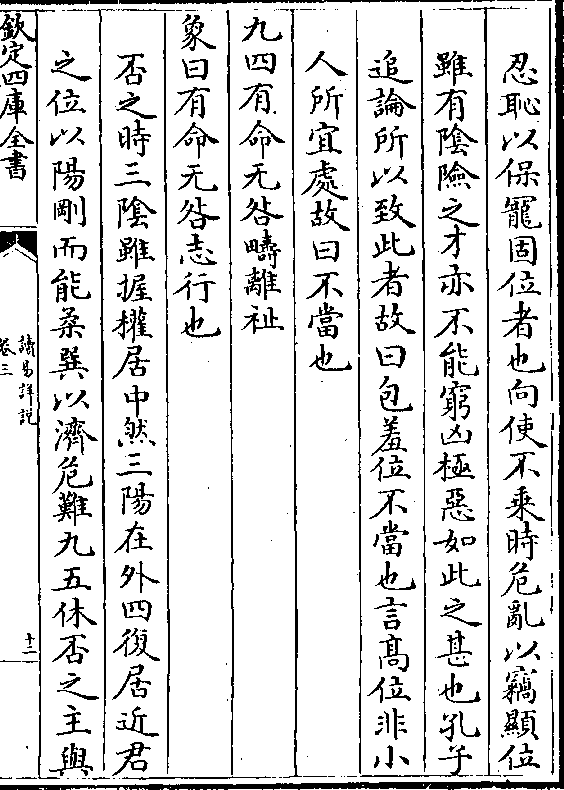 忍恥以保寵固位者也向使不乘時危亂以竊顯位
雖有陰險之才亦不能窮凶極惡如此之甚也孔子
追論所以致此者故曰包羞位不當也言高位非小
人所宜處故曰不當也
九四有命无咎疇離祉
象曰有命无咎志行也
否之時三陰雖握權居中然三陽在外四復居近君
之位以陽剛而能柔巽以濟危難九五休否之主與
欽定四庫全書
讀易詳説
卷三
十二